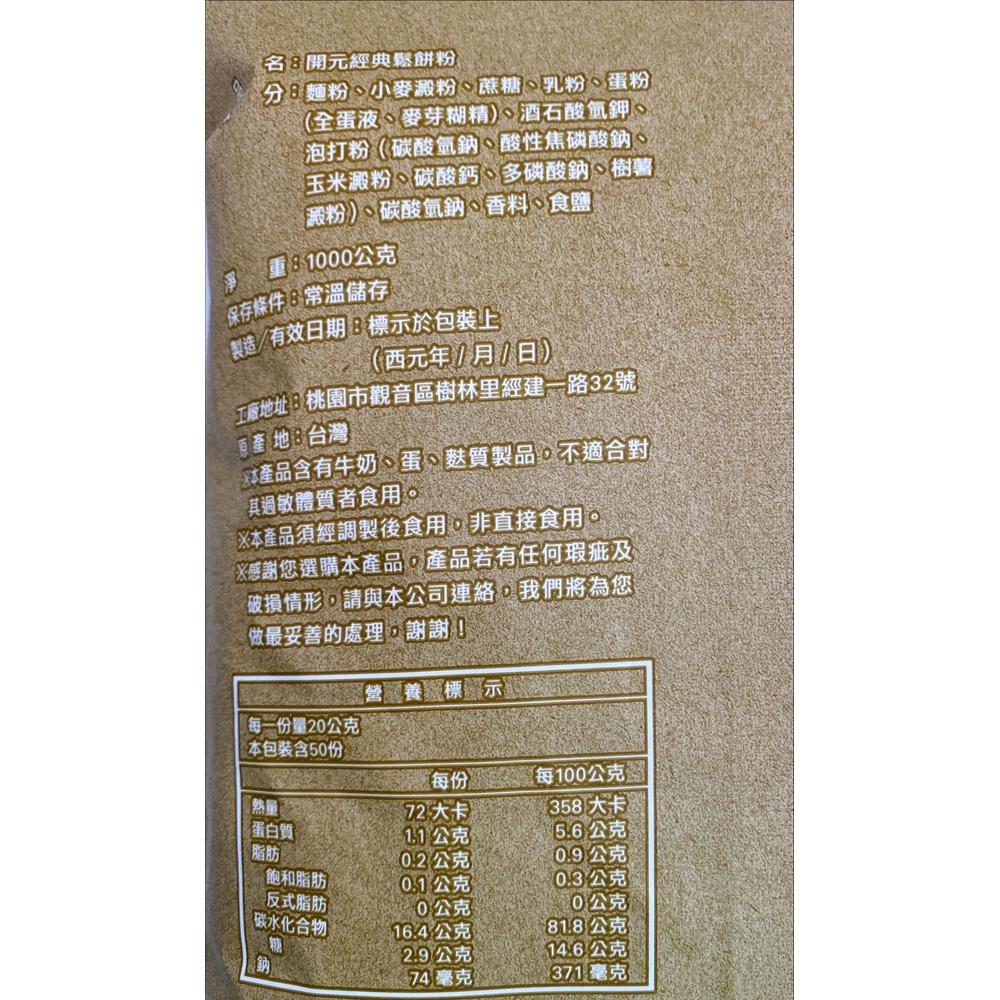 名：開元經典鬆餅粉
分：麵粉、小麥澱粉、蔗糖、乳粉、蛋粉
(全蛋液、麥芽糊精)、酒石酸氫鉀、
泡打粉（碳酸氫鈉、酸性焦磷酸鈉、
玉米澱粉、碳酸鈣、多磷酸鈉、樹薯
澱粉）、碳酸氫鈉、香料、食鹽
淨 重：1000公克
保存條件：常溫儲存
製造/有效日期：標示於包裝上
（西元年/月/日）
工廠地址：桃園市觀音區樹林里經建一路32號
原產地：台灣
※本產品含有牛奶、蛋、麩質製品，不適合對
其過敏體質者食用。
※本產品須經調製後食用，非直接食用。
※感謝您選購本產品，產品若有任何瑕疵及
破損情形，請與本公司連絡，我們將為您
做最妥善的處理，謝謝！
營養標示
每一份量20公克
本包裝含50份
每份 每100公克
熱量 72 大卡 358 大卡
蛋白質 1.1 公克 5.6 公克
脂肪 0.2 公克 0.9 公克
飽和脂肪 0.1 公克 0.3 公克
反式脂肪 0 公克 0 公克
碳水化合物 16.4 公克 81.8 公克
糖 2.9 公克 14.6 公克
鈉 74 毫克 371 毫克